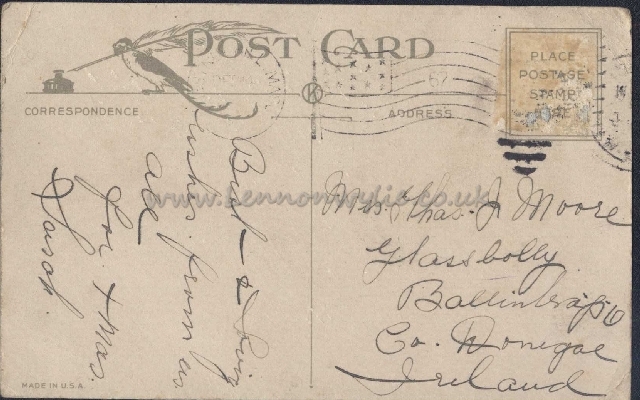 POST CARD
PLACE
POSTAGE
STAMP
HERE
CORRESPONDENCE
ADDRESS
Best &
wishes from us
all
for Xmas.
www.lennonwylie.co.uk
Mrs. Thos. J Moore
Glassbolly
Ballintra P.O
Co. Donegal
Ireland
MADE IN U.S.A.